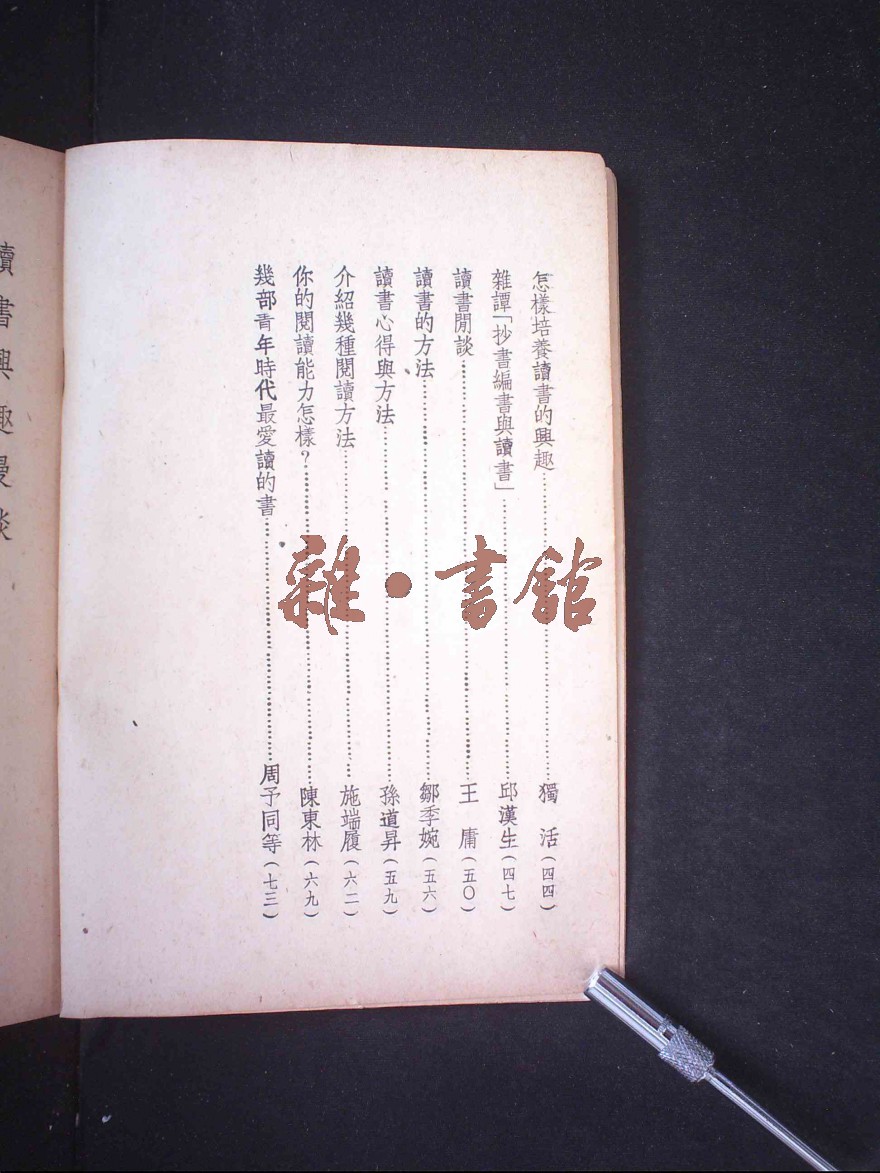 怎樣培養讀書的興趣……獨　活(四四)
雜譚「抄書編書與讀書」……邱漢生(四七)
讀書閒談……王　庸(五〇)
讀書的方法……鄒季婉(五六)
讀書心得與方法……孫道昇(五九)
介紹幾種閱讀方法……施端履(六二)
你的閱讀能力怎樣？……陳東林(六九)
幾部青年時代最愛讀的書……周予同等(七三)
讀書興趣漫談
雜·書館